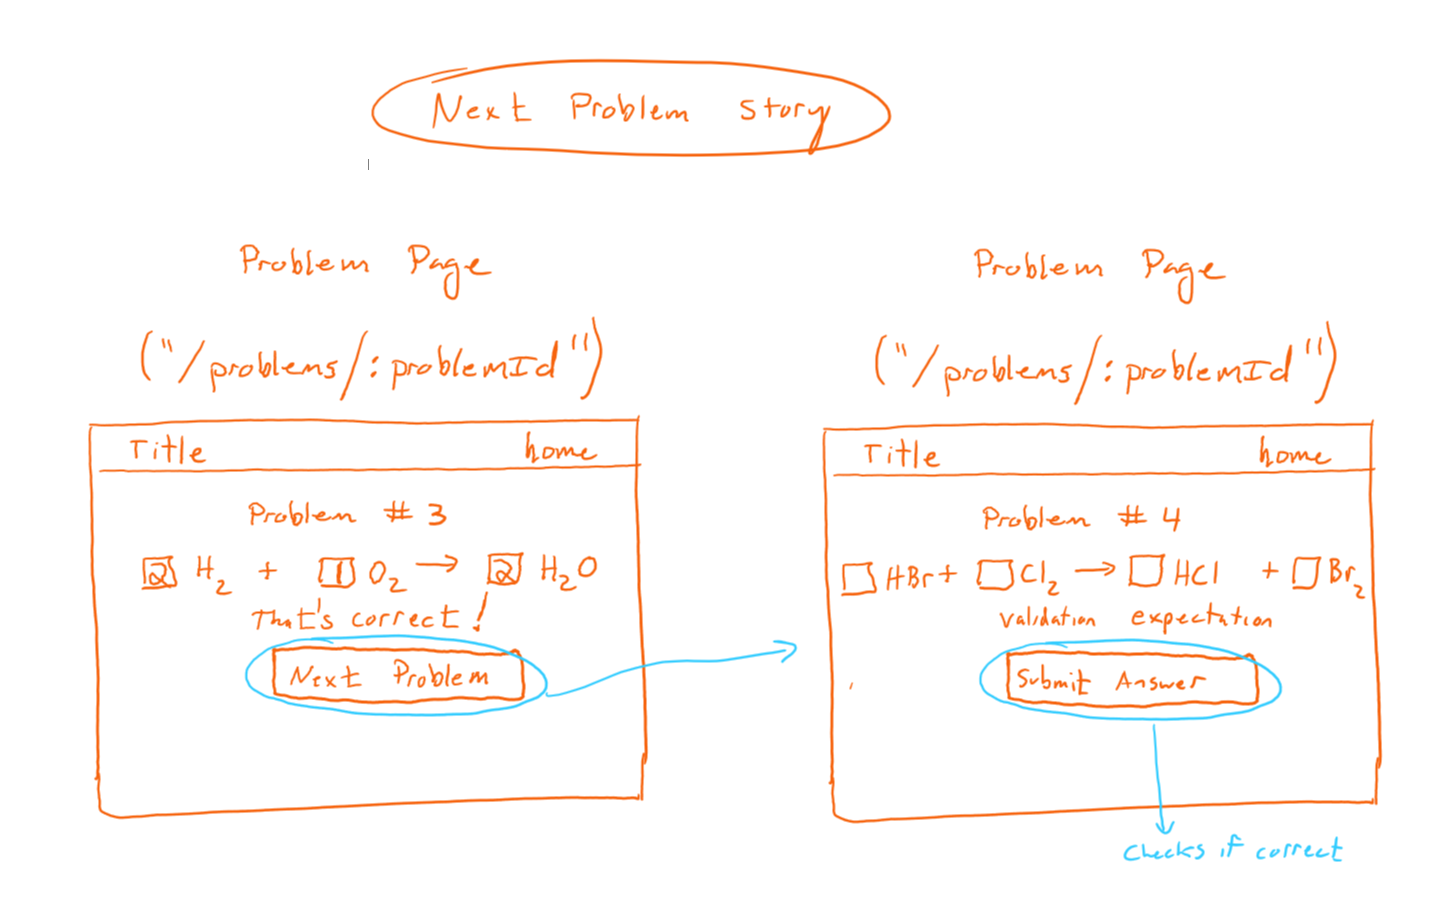 Next Problem Story
Problem Page
("/problems/:problemId")
Title home
Problem # 3
2 H₂ + 1 O₂ → 2 H₂O
That's correct!
Next Problem
Problem Page
("/problems/:problemId")
Title home
Problem # 4
HBr + Cl₂ → HCl + Br₂
validation expectation
Submit Answer
Checks if correct